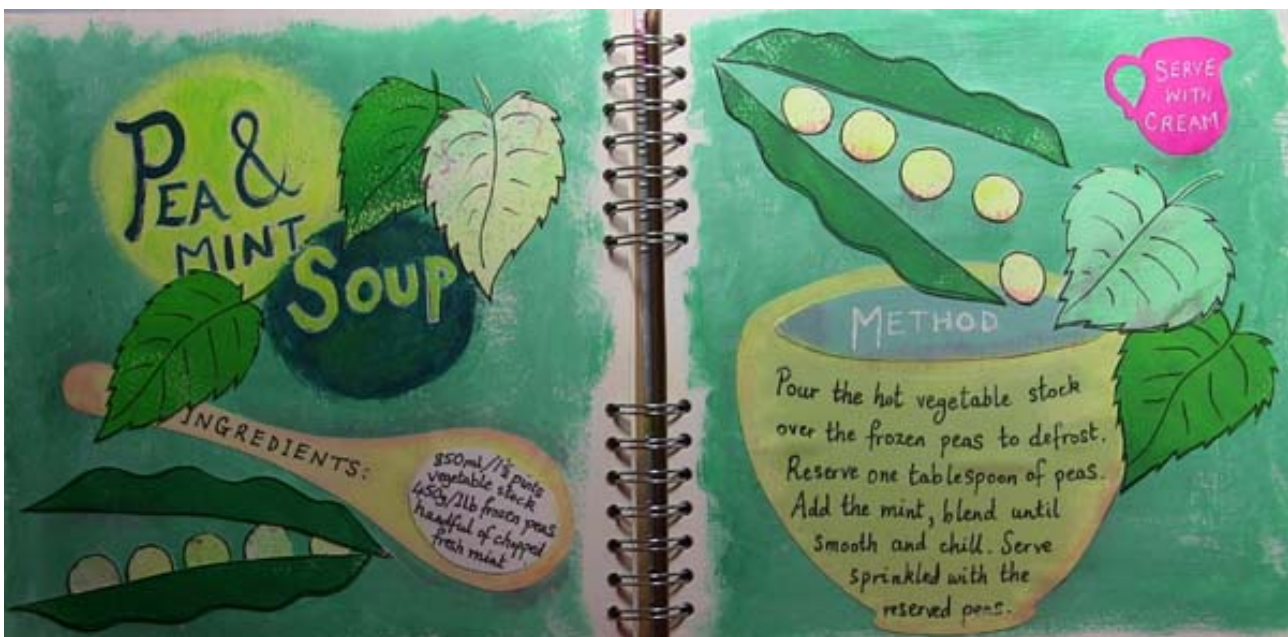 PEA &
MINT
SOUP
INGREDIENTS:
850ml/1½ pints
vegetable stock
450g/1lb frozen peas
handful of chopped
fresh mint
SERVE
WITH
CREAM
METHOD
Pour the hot vegetable stock
over the frozen peas to defrost.
Reserve one tablespoon of peas.
Add the mint, blend until
smooth and chill. Serve
sprinkled with the
reserved peas.